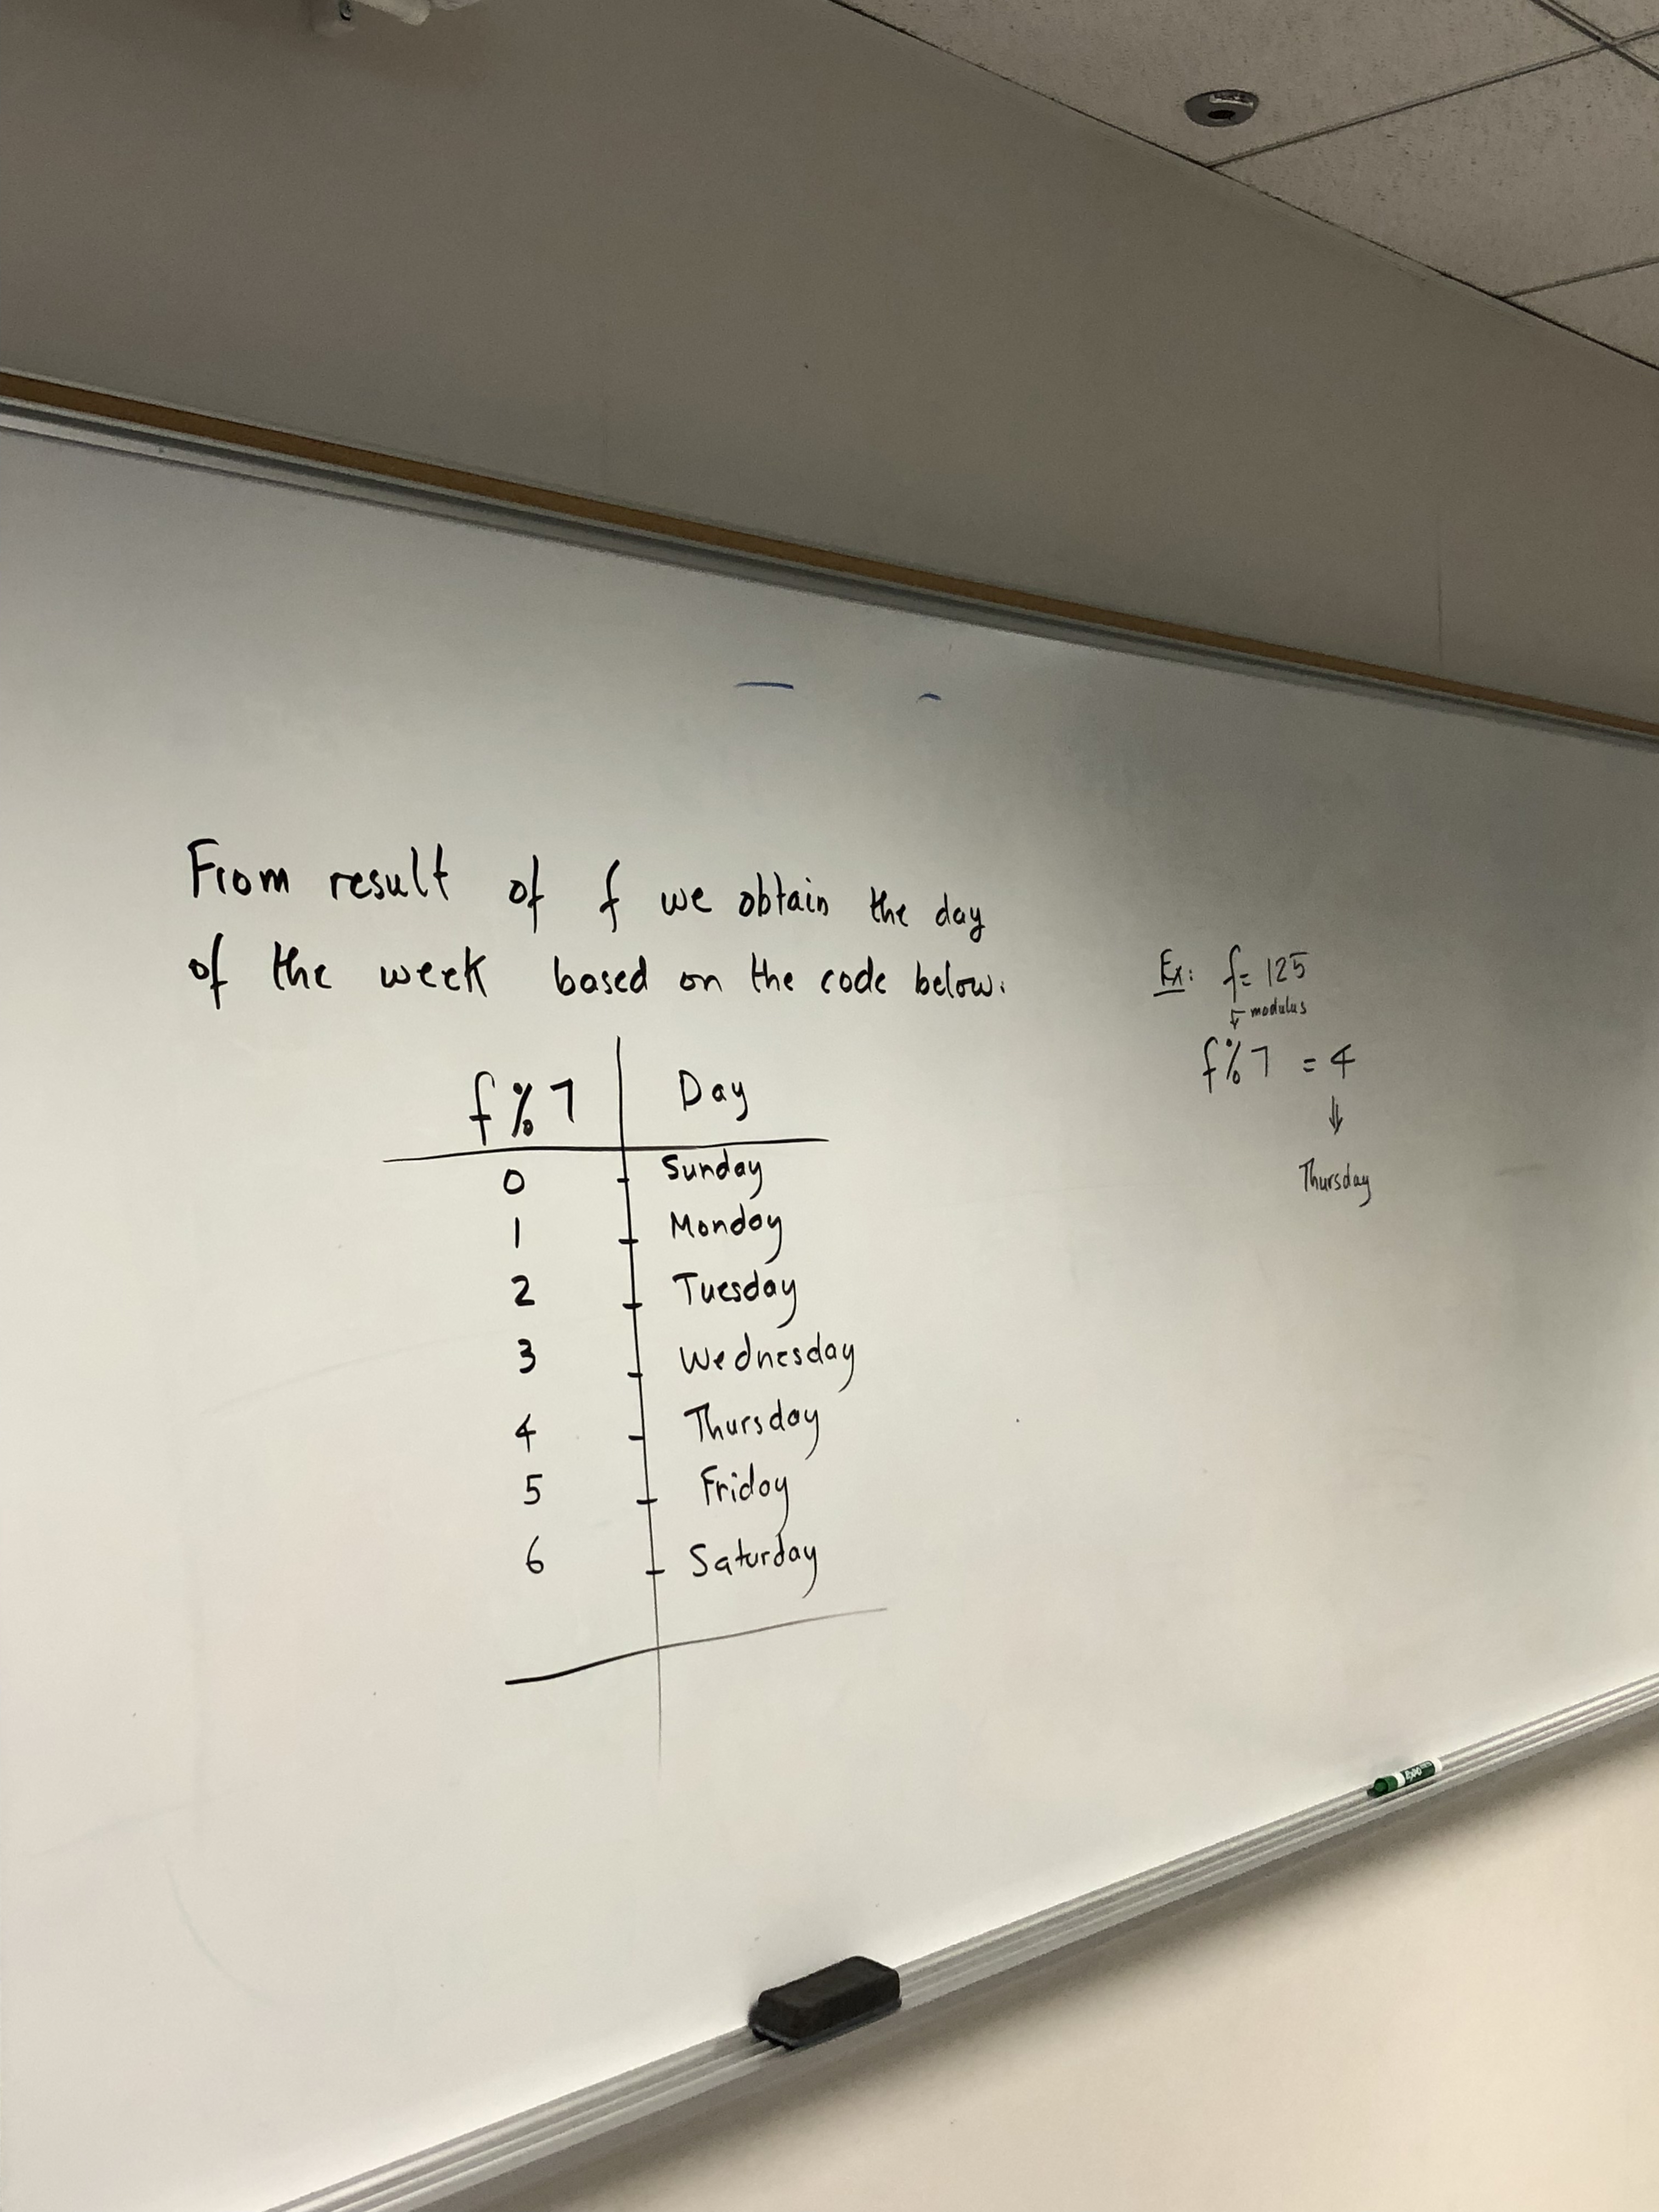 From result of f we obtain the day
of the week based on the code below.
f%7 Day
0 Sunday
1 Monday
2 Tuesday
3 Wednesday
4 Thursday
5 Friday
6 Saturday
Ex: f= 125
modulus
f%7 = 4
Thursday
EXPO